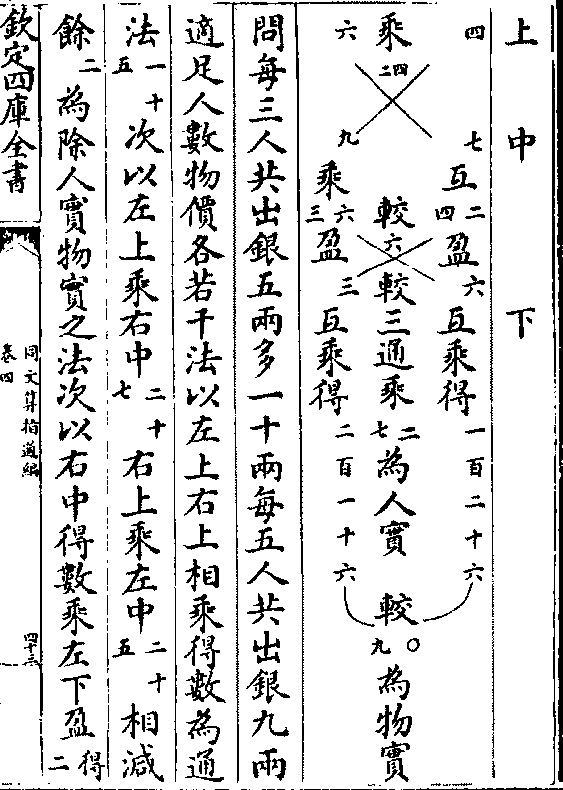 上　中　下
四　七　互　二四　盈　六　互乘得　一百二十六
乘　四二　較　六　較三通乘　二七　為人實　較　九〇　為物實
六　九　乘　六三　盈　三　互乘得　二百一十六
問每三人共出銀五兩多一十兩每五人共出銀九兩
適足人數物價各若干法以左上右上相乘得數為通
法一十五次以左上乘右中二十七右上乘左中二十五相減
餘二為除人實物實之法次以右中得數乘左下盈得二
欽定四庫全書
同文算指通編
卷四
四十三